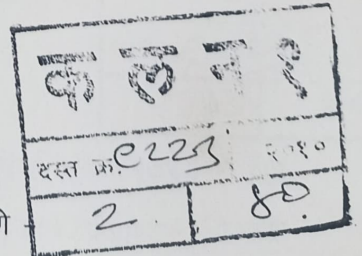 क ल न १
दस्त क्र. ९२२३ २०१०
2 ४०